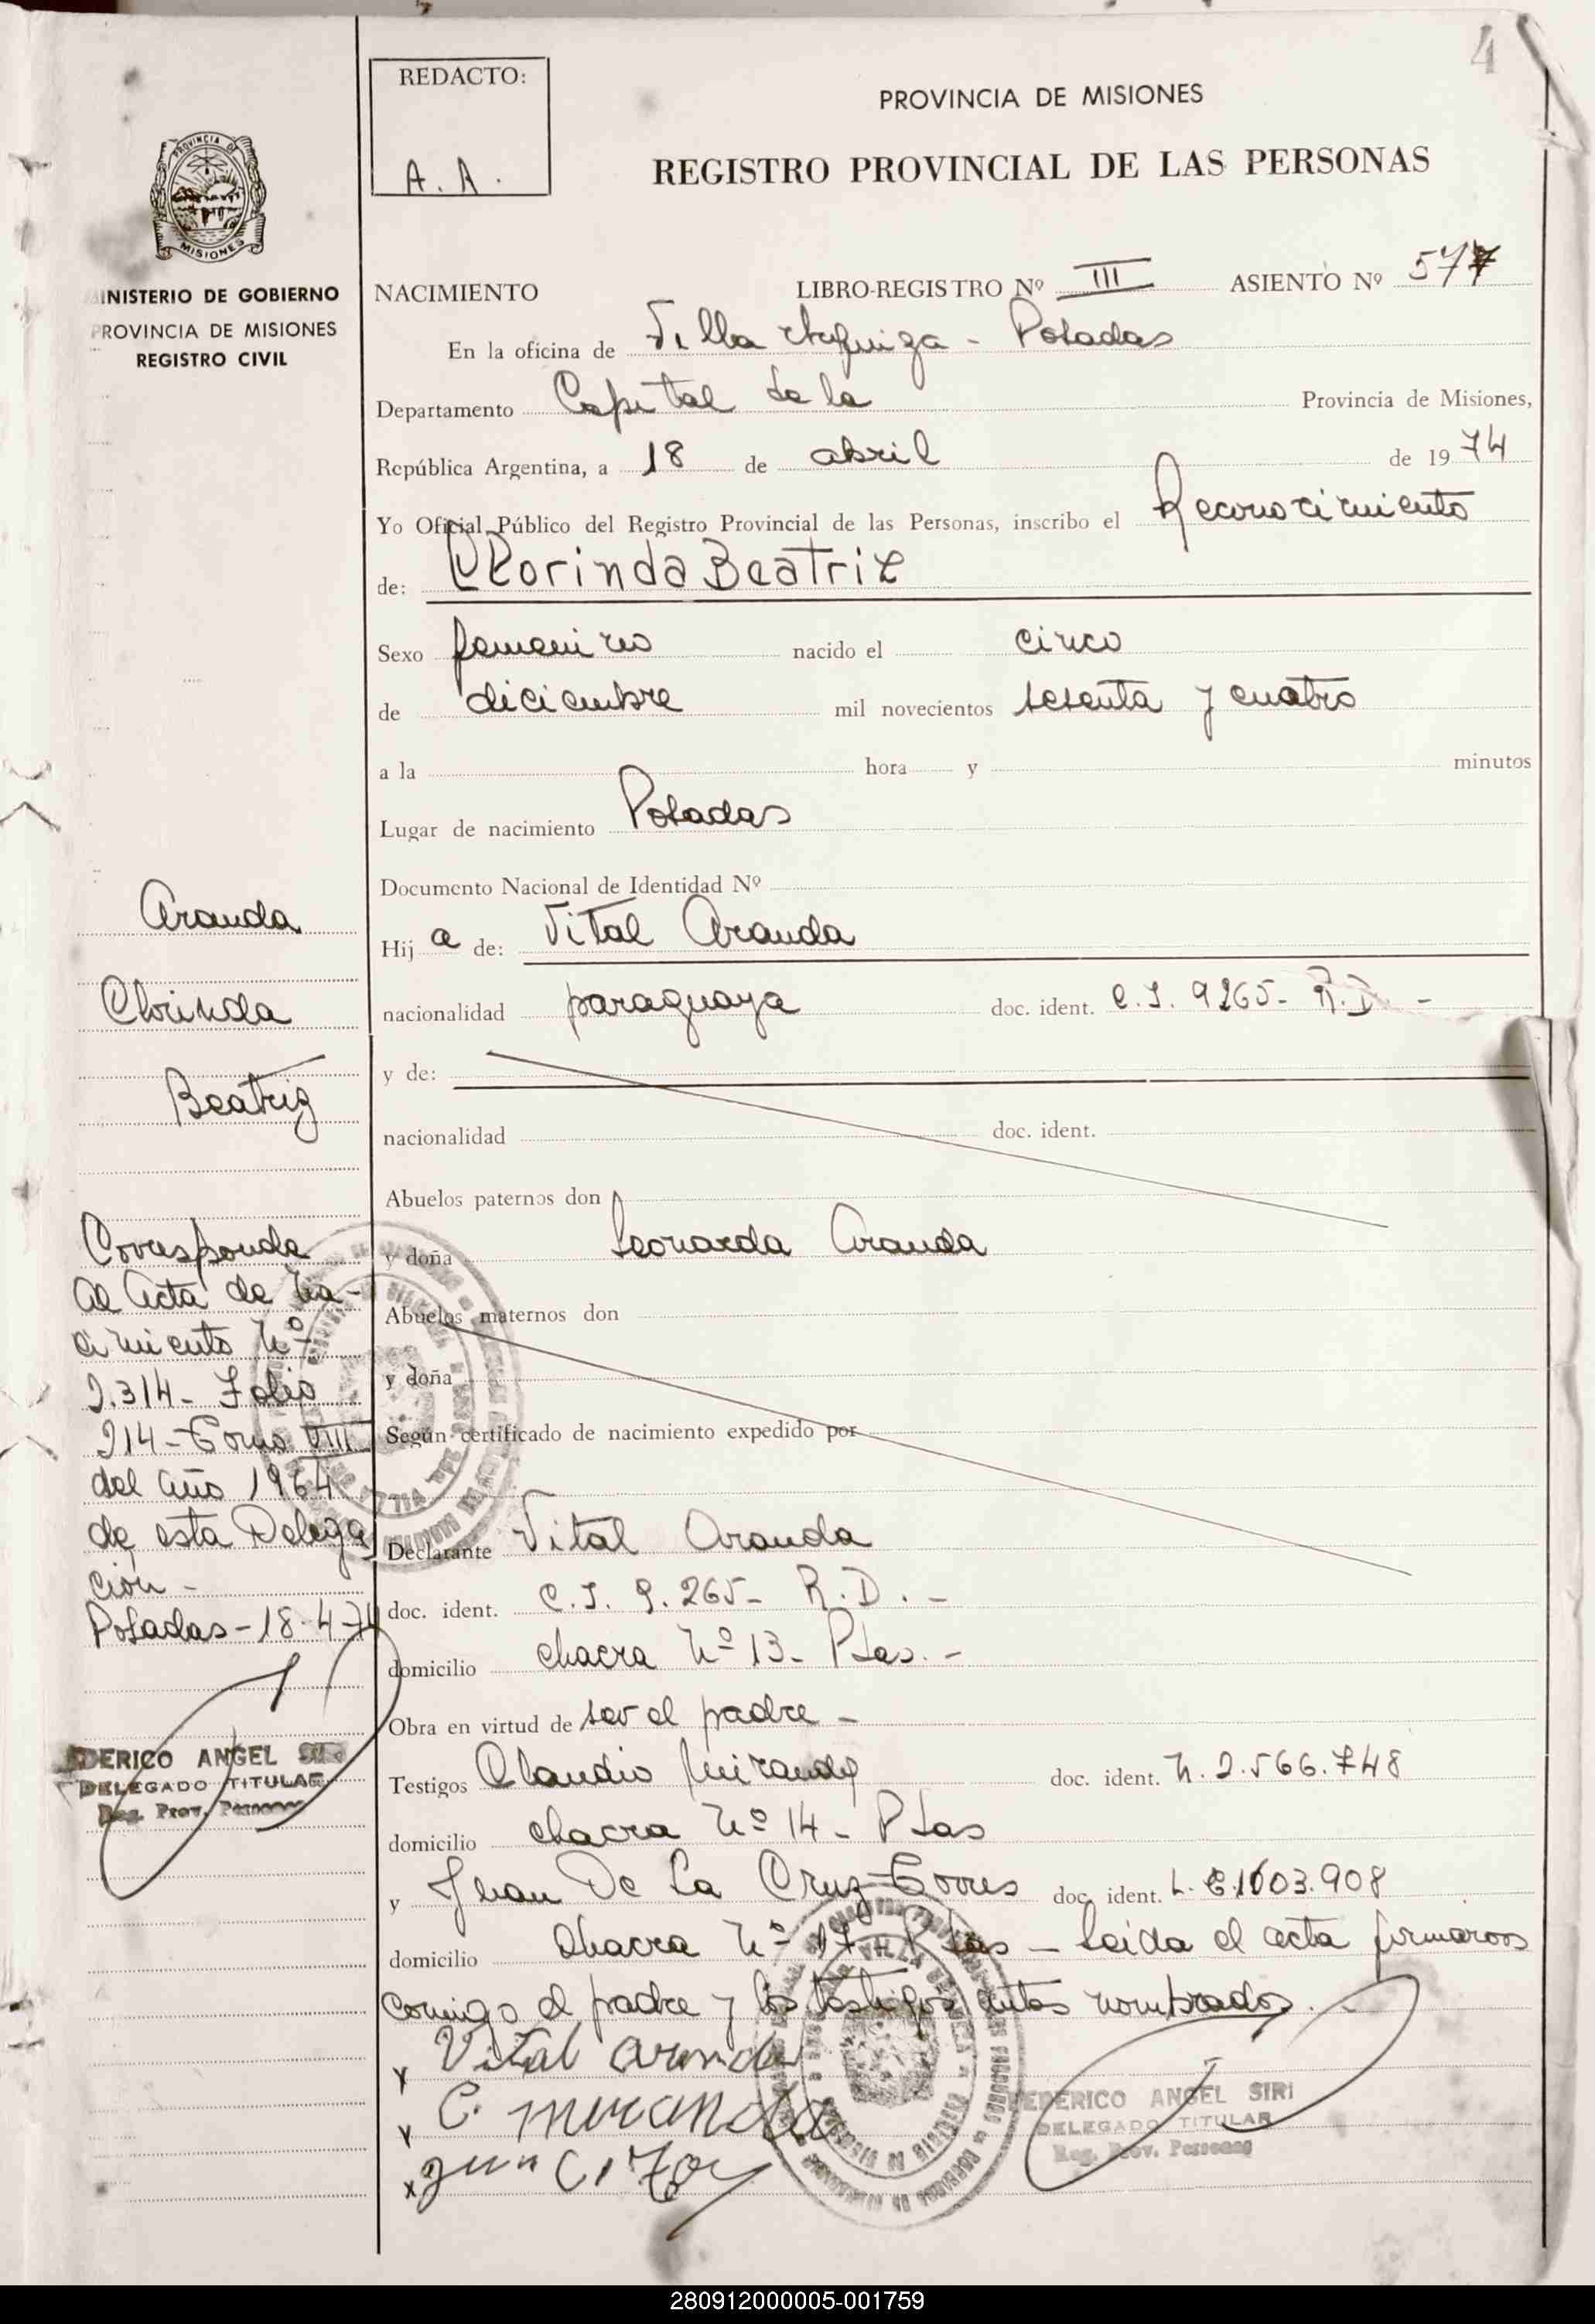 4
REDACTO:
A. A.
PROVINCIA DE MISIONES
REGISTRO PROVINCIAL DE LAS PERSONAS
PROVINCIA DE
MISIONES
MINISTERIO DE GOBIERNO
PROVINCIA DE MISIONES
REGISTRO CIVIL
NACIMIENTO LIBRO-REGISTRO Nº III ASIENTO Nº 577
En la oficina de Villa Urquiza - Posadas
Departamento Capital de la Provincia de Misiones,
República Argentina, a 18 de abril de 1974
Yo Oficial Público del Registro Provincial de las Personas, inscribo el Reconocimiento
de: Clorinda Beatriz
Sexo femenino nacido el cinco
de diciembre mil novecientos sesenta y cuatro
a la hora y minutos
Lugar de nacimiento Posadas
Documento Nacional de Identidad Nº
Hija de: Vital Aranda
nacionalidad paraguaya doc. ident. C.I. 9265- R.D -
y de:
nacionalidad doc. ident.
Abuelos paternos don
y doña Leonarda Aranda
Abuelos maternos don
y doña
Según certificado de nacimiento expedido por
Declarante Vital Aranda
doc. ident. C.I. 9.265- R.D. -
domicilio chacra Nº 13- Pdas. -
Obra en virtud de ser el padre -
Testigos Claudio Miranda doc. ident. N. 2.566.748
domicilio chacra Nº 14- Pdas
y Juan De La Cruz Torres doc. ident. L.E. 1603.908
domicilio Chacra Nº 17 Pdas - Leida el acta firmaron
comigo el padre y los testigos antes nombrados. -
x Vital Aranda
x C. Miranda
x
FEDERICO ANGEL SIRI
DELEGADO TITULAR
Reg. Prov. Personas
Aranda
Clorinda
Beatriz
Corresponde
al Acta de Na-
cimiento Nº
2.314- Folio
214- Tomo VIII
del año 1964
de esta Delega
ción -
Posadas - 18-4-74
FEDERICO ANGEL SIRI
DELEGADO TITULAR
Reg. Prov. Personas
280912000005-001759